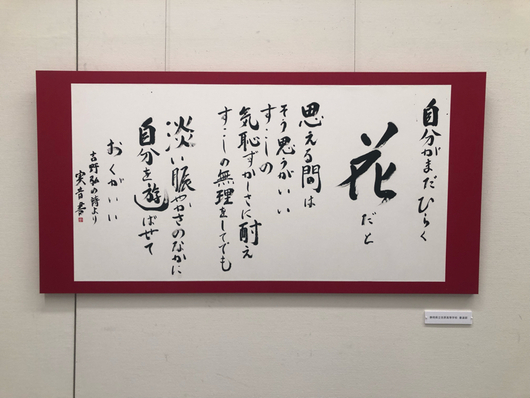 自分がまだひらく
花だと
思える間は
そう思うがいい
すこしの
気恥ずかしさに耐え
すこしの無理をしてでも
淡い賑やかさのなかに
自分を遊ばせて
おくがいい
吉野弘の詩より
実音書